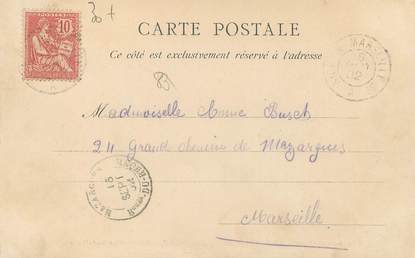 10
CARTE POSTALE
Ce côté est exclusivement réservé à l'adresse
Mademoiselle Anne Busch
24 Grand chemin de Mazargues
Marseille
MAZARGUES
15
SEPT
02
BOUCHES-DU-RHONE